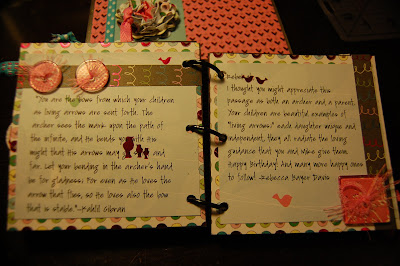 "You are the bows from which your children
as living arrows are sent forth. The
archer sees the mark upon the path of
the infinite, and He bends you with His
might that His arrows may go swift and
far. Let your bending in the archer's hand
be for gladness; For even as He loves the
arrow that flies, so He loves also the bow
that is stable." -Kahlil Gibran
I thought you might appreciate this
passage as both an archer and a parent.
Your children are beautiful examples of
"living arrows:" each daughter unique and
independent, they all radiate the loving
guidance that you and wife give them.
Happy Birthday! And many more happy ones
to follow! -Rebecca Bayer Davis